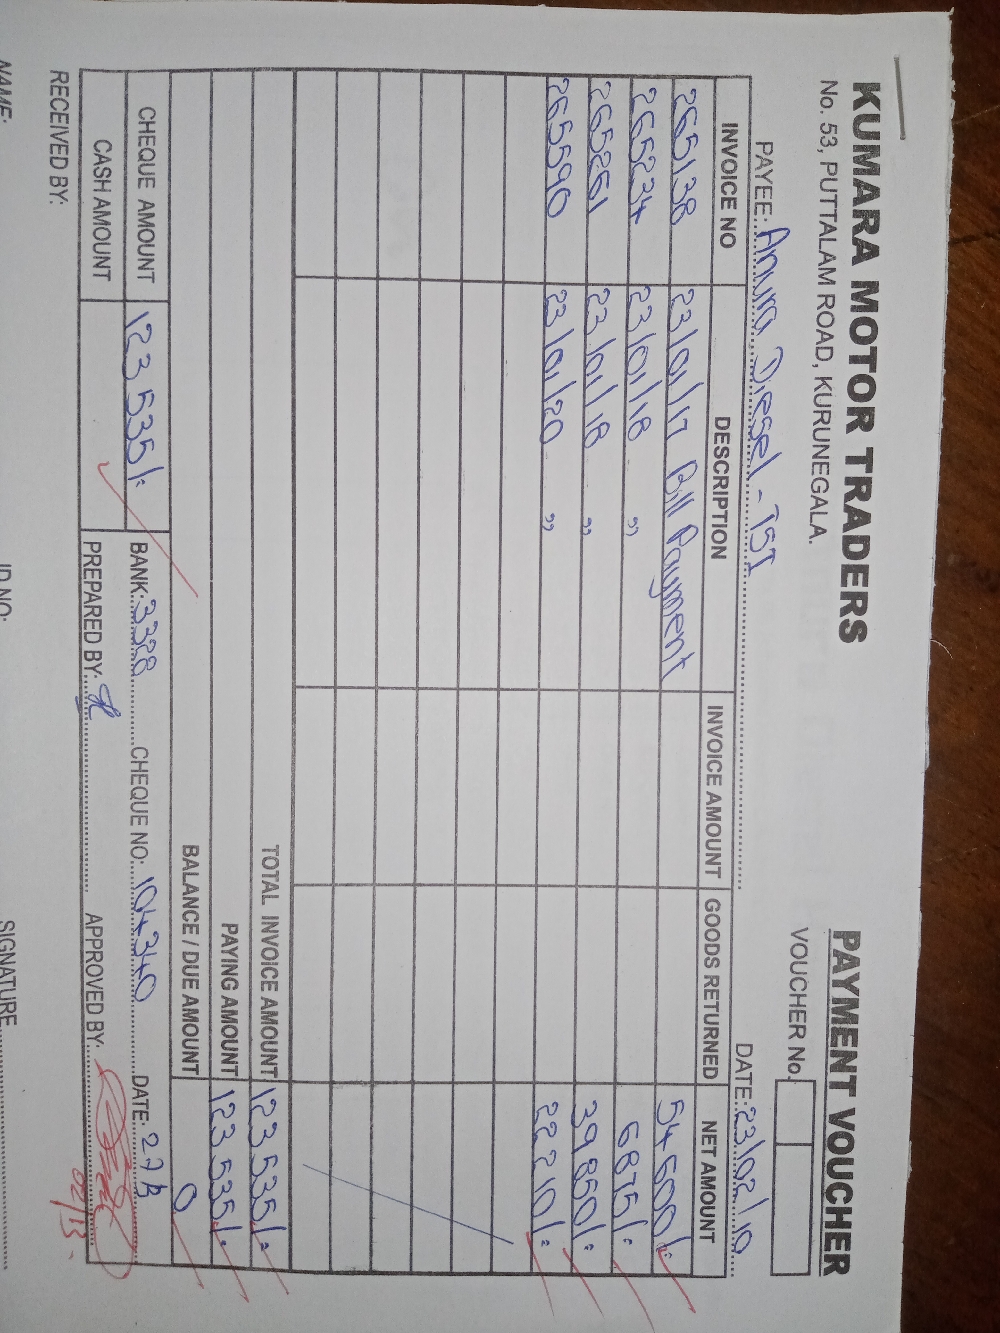 KUMARA MOTOR TRADERS
PAYMENT VOUCHER
No. 53, PUTTALAM ROAD, KURUNEGALA.
VOUCHER No.
PAYEE: Anura Diesel - TSI DATE: 23/02/10
INVOICE NO DESCRIPTION INVOICE AMOUNT GOODS RETURNED NET AMOUNT
265138 23/01/17 Bill Payment 54600/=
265234 23/01/18 " 6875/=
265261 23/01/18 " 39850/=
265590 23/01/20 " 22210/=
TOTAL INVOICE AMOUNT 123535/=
PAYING AMOUNT 123535/=
BALANCE / DUE AMOUNT 0
CHEQUE AMOUNT 123535/= BANK: 3328 CHEQUE NO: 104340 DATE: 27/3
CASH AMOUNT PREPARED BY: APPROVED BY:
02/13
RECEIVED BY:
NAME: ID NO: SIGNATURE